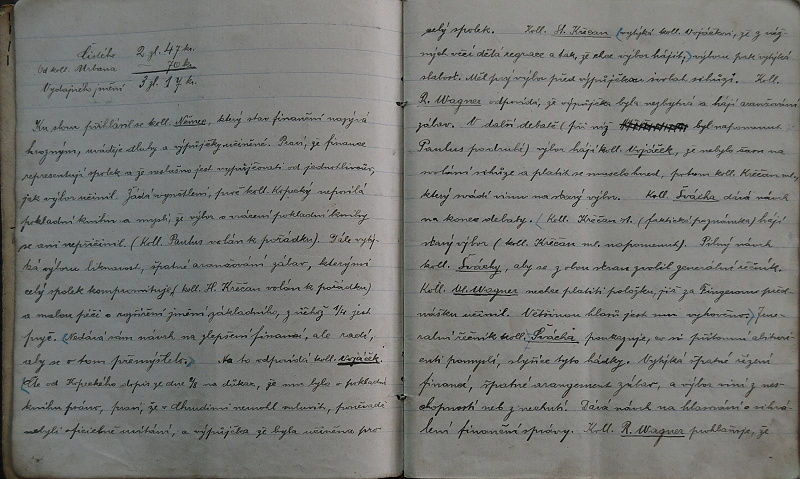 Čistého 2 zl. 47 kr.
Od koll. Urbana 70 kr.
Výdajného jmění 3 zl. 17 kr.
Ku slovu přihlásil se koll. Němec, který stav finanční nazývá
hrozným, uvádí dluhy a výpůjčky učiněné. Praví, že finance
representují spolek a že neslušno jest vypůjčovati od jednotlivců,
jak výbor učinil. Žádá vysvětlení, proč koll. Kopecký neposílá
pokladní knihu a myslí, že výbor o vrácení pokladní knihy
se ani nepřičinil. (Koll. Paulus volán k pořádku). Dále vytý-
ká výboru liknavost, špatné aranžování zábav, kterými
celý spolek kompromituje (koll. H. Křečan volán k pořádku)
a malou péči o rozšíření jmění základního, z něhož 1/4 jest
pryč. (Nedává sám návrh na zlepšení financí, ale radí,
aby se o tom přemýšlelo.) Na to odpovídá koll. Vojáček.
Čte od Kopeckého dopis ze dne na důkaz, že mu bylo o pokladní
knihu psáno, praví, že v Chrudimi nemohl
nebyli oficielně uvítáni, a výpůjčka že byla učiněna pro
celý spolek. Koll. H. Křečan (vytýká koll. Vojáčkovi, že z váž-
ných věcí dělá legrace a tak, že chce výbor hájit,) výboru pak vytýká
slabost. Měl prý výbor před výpůjčkou svolat schůzi. Koll.
R. Wagner odpovídá, že výpůjčka byla nezbytná a hájí aranžování
zábav. V další debatě (při níž byl napomenut
Paulus podruhé) výbor hájí koll. Vojáček, že nebylo času na
svolání schůze a platit se muselo hned, potom koll. Křečan ml.,
který svádí vinu na starý výbor. Koll. Švácha dává návrh
na konec debaty. (Koll. Křečan st. (faktická poznámka) hájí
starý výbor (koll. Křečan ml. napomenut). Pilný návrh
koll. Šváchy, aby se z obou stran zvolil generální řečník.
Koll. Vl. Wagner nechce platiti položku, již za Fingerovu před-
nášku učinil. Většinou hlasů jest mu vyhověno.) Gene-
rální řečník koll. Švácha poukazuje, co si přítomní abituri-
enti pomyslí, slyšíce tyto hádky. Vytýká špatné řízení
financí, špatné arangement zábav, a výbor viní z nes-
chopnosti neb z nechuti. Dává návrh na hlasování o schvá-
lení finanční správy. Koll. R. Wagner prohlašuje, že